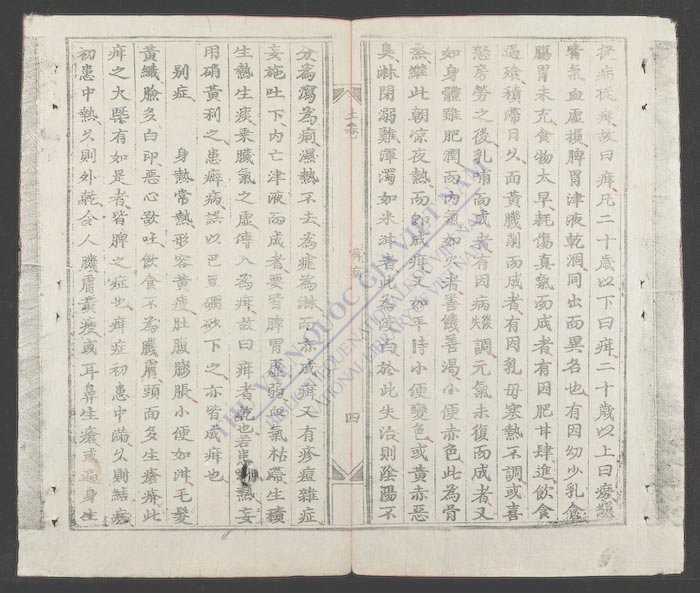 從病從疳故曰疳凡二十歲以下曰疳二十歲以上曰癆總
皆氣血虛損脾胃津液乾涸同出而異名也有因幼少乳食
腸胃未充食物太早耗傷真氣而成者有因肥甘肆進飲食
過難積滯日久面黃臟削而成者有因乳母寒熱不調或喜
怒房勞之後乳哺而成者有因病調元氣未復而成者又
如身體雖肥潤而內氣如火者善饑善渴小便赤色此為骨
蒸繼此朝涼夜熱而即成疳又如平時小便變色或黃赤惡
臭淋閉溺難渾濁如米泔者此為於此失治則陰陽不
上卷
四
分為瀉為痢濕熱不去為瘧為淋而亦成疳又有疹痘雜症
妄施吐下內亡津液而成者要皆脾胃虛弱血氣枯滯生積
生熱生痰柔臟氣之虛傳入為疳故曰疳者乾也若患熱妄
用硝黃利之患癖病誤以巴豆硼砂下之亦皆成疳也
別症 身熱常熱形容黃瘦肚腹膨脹小便如泔毛髮
黃纖臉多白印惡心欲吐飲食不為臟膚頭面多生瘡瘠此
疳之大槩有如是者皆脾之症也疳症初患中滿久則結癖
初患中熱久則外乾令人臟膚黃瘦或耳鼻生瘡或遍身生
THƯ VIỆN QUỐC GIA VIỆT NAM
BIBLIOTHEQUE NATIONALE DU VIETNAM
NATIONAL LIBRARY OF VIETNAM